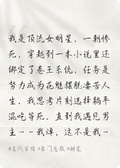 我是顶流女明星，一朝惨
死，穿越到一本小说里还
绑定了卷王系统，任务是
努力成为花魁摆脱凄苦人
生，我思考片刻选择躺平
混吃等死，直到我遇见男
主——我焯，这不是我—
#古代言情 #豪门总裁 #甜宠